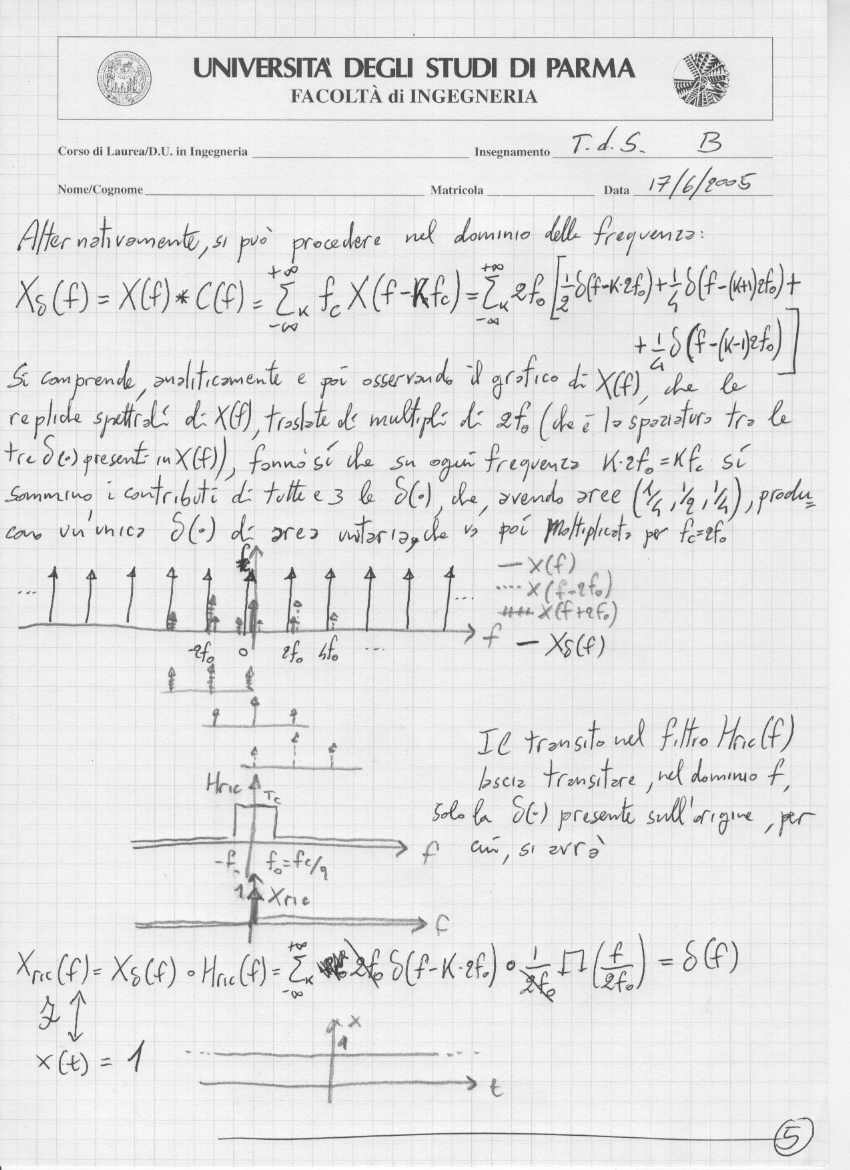 UNIVERSITA' DEGLI STUDI DI PARMA
FACOLTÀ di INGEGNERIA
Corso di Laurea/D.U. in Ingegneria Insegnamento T.d.S. B
Nome/Cognome Matricola Data 17/6/2005
Alternativamente, si può procedere nel dominio delle frequenze:
Xδ(f) = X(f) * C(f) = Σ_K^{+∞}_{-∞} f_c X(f-Kf_c) = Σ_K^{+∞}_{-∞} 2f₀ [1/2 δ(f-K·2f₀) + 1/4 δ(f-(K+1)2f₀) +
+ 1/4 δ(f-(K-1)2f₀)]
Si comprende, analiticamente e poi osservando il grafico di X(f), che le
repliche spettrali di X(f), traslate di multipli di 2f₀ (che è la spaziatura tra le
tre δ(·) presenti in X(f)), fanno sì che su ogni frequenza K·2f₀=Kf_c si
sommino i contributi di tutte e 3 le δ(·), che, avendo aree (1/4, 1/2, 1/4), produ=
cono un'unica δ(·) di area unitaria, che va poi moltiplicata per f_c=2f₀
... f_c ...
— X(f)
···· X(f-2f₀)
X(f+2f₀)
— Xδ(f)
-2f₀ 0 2f₀ 4f₀ ... f
Il transito nel filtro Hric(f)
lascia transitare, nel dominio f,
solo la δ(·) presente sull'origine, per
cui, si avrà
Hric Tc
-f₀ f₀=fc/2 f
1 Xric
f
Xric(f) = Xδ(f) · Hric(f) = Σ_K^{+∞}_{-∞} 2f₀ δ(f-K·2f₀) · 1/2f₀ Π(f/2f₀) = δ(f)
x(t) = 1
x
1
t
5